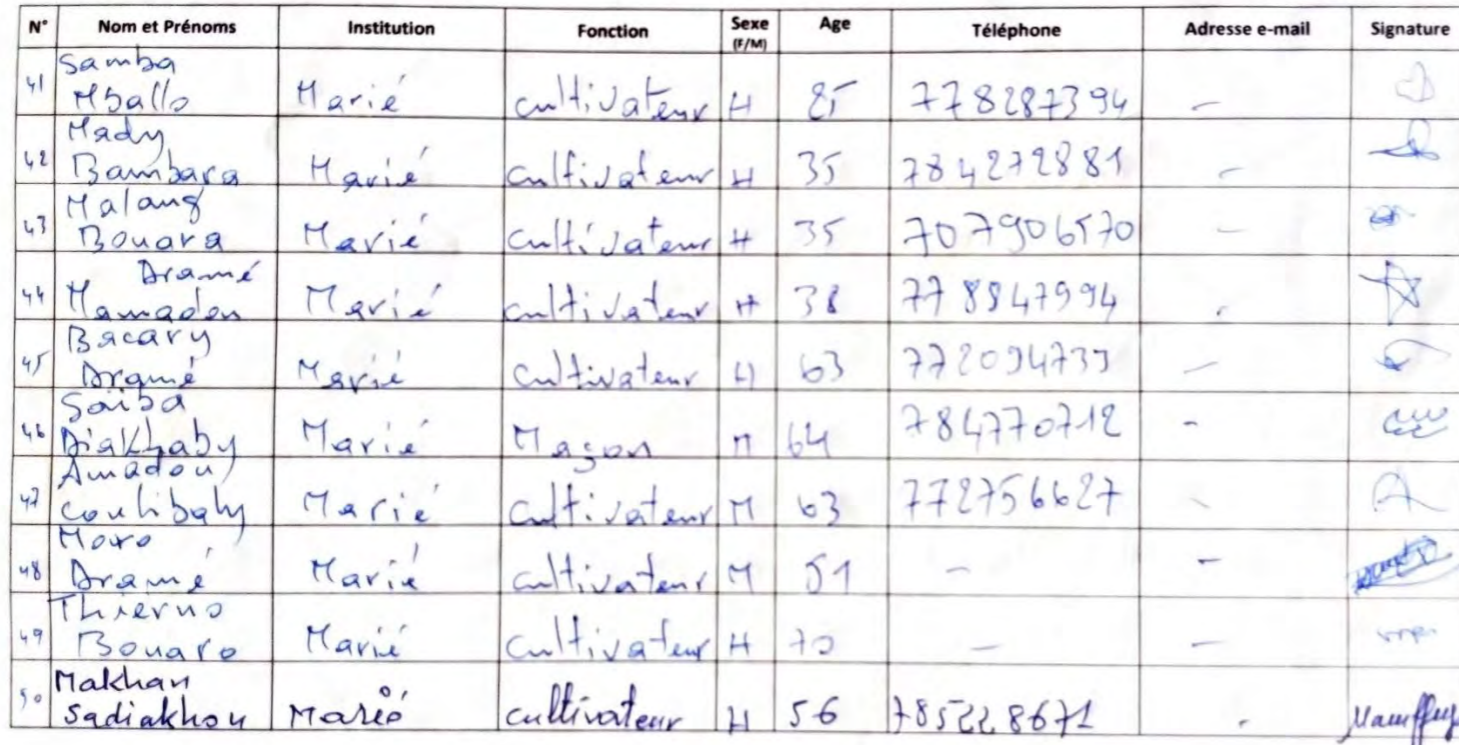 N° Nom et Prénoms Institution Fonction Sexe (F/M) Age Téléphone Adresse e-mail Signature
41 Samba Mballo Marié cultivateur H 778287394 -
42 Mady Bambara Marié cultivateur H 35 784272881 -
43 Malang Bouara Marié cultivateur H 35 707906570 -
44 Dramé Mamadou Marié cultivateur H 38 778947994 -
45 Bacary Dramé Marié cultivateur H 63 -
46 Saïba Diakhaby Marié Maçon M 64 784770712 -
47 Amadou Coulibaly Marié cultivateur M 63 772756627 -
48 Moro Dramé Marié cultivateur M 51 - -
49 Thierno Bouaro Marié cultivateur H 70 - -
50 Makhan Sadiakhou Marié cultivateur H 56 785228671 -